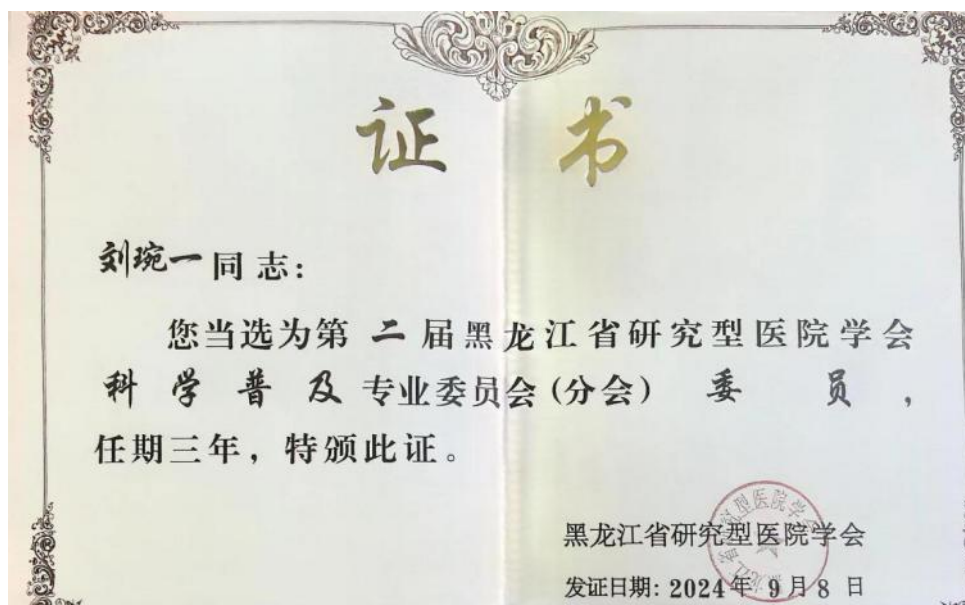 证 书
刘琬一同志:
您当选为第 二 届黑龙江省研究型医院学会
科 学 普 及 专业委员会(分会) 委 员,
任期三年，特颁此证。
黑龙江省研究型医院学会
黑龙江省研究型医院学会
发证日期: 2024年 9月 8 日